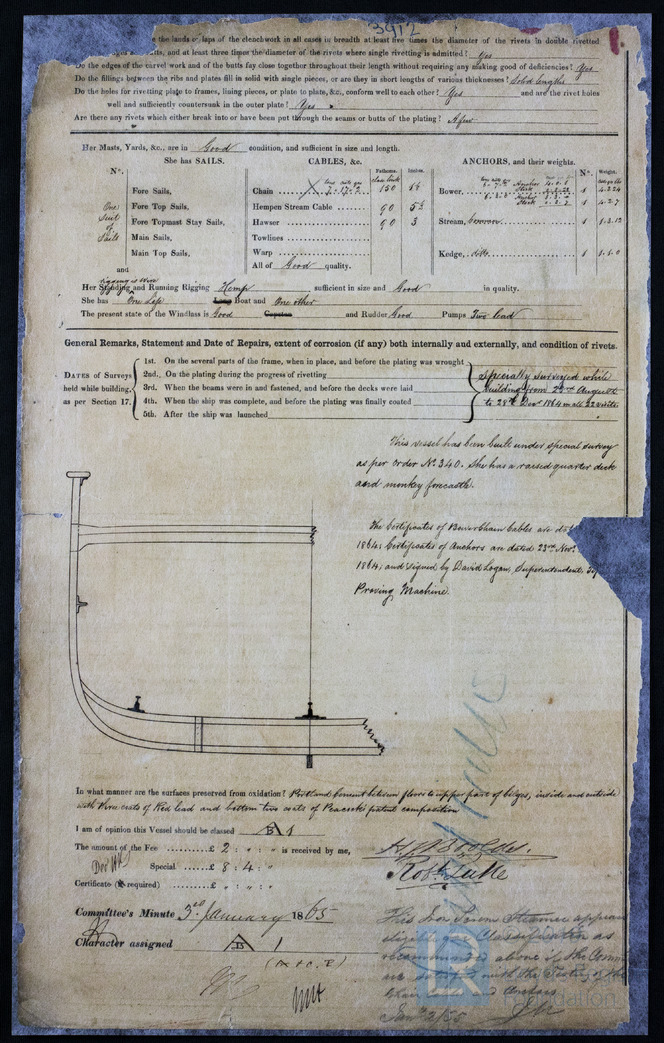 3912
the lands or laps of the clenchwork in all cases in breadth at least five times the diameter of the rivets in double rivetted
and at least three times the diameter of the rivets where single rivetting is admitted? Yes
Do the edges of the carvel work and of the butts fay close together throughout their length without requiring any making good of deficiencies? Yes
Do the fillings between the ribs and plates fill in solid with single pieces, or are they in short lengths of various thicknesses? Solid lengths
Do the holes for rivetting plate to frames, lining pieces, or plate to plate, &c., conform well to each other? Yes and are the rivet holes
well and sufficiently countersunk in the outer plate? Yes
Are there any rivets which either break into or have been put through the seams or butts of the plating? A few
Her Masts, Yards, &c., are in Good condition, and sufficient in size and length.
She has SAILS. CABLES, &c. ANCHORS, and their weights.
N°. Fathoms. Inches. N°. Weight.
Fore Sails, Chain 150 Bower, 1 4.3.24
One Suit of Sails
Fore Top Sails, Hempen Stream Cable 90 5½ 1 4.2.7
Fore Topmast Stay Sails, Hawser 90 3 Stream, 1
Main Sails, Towlines
Main Top Sails, Warp Kedge, ditto 1 1.1.0
and All of Good quality.
Her Standing and Running Rigging Hemp sufficient in size and Good in quality.
She has One Life Long Boat and One other
The present state of the Windlass is Good Capstan and Rudder Good Pumps Two lead
General Remarks, Statement and Date of Repairs, extent of corrosion (if any) both internally and externally, and condition of rivets.
DATES of Surveys held while building, as per Section 17.
1st. On the several parts of the frame, when in place, and before the plating was wrought
2nd. On the plating during the progress of rivetting
3rd. When the beams were in and fastened, and before the decks were laid
4th. When the ship was complete, and before the plating was finally coated
5th. After the ship was launched
Specially surveyed while
building from 22nd August
to 28th Decr 1864 in all 22 visits
This vessel has been built under special survey
as per order No. 340. She has a raised quarter deck
and monkey forecastle.
The Certificates of Bower Chain Cables are
1864; Certificates of Anchors are dated 23rd Novr
1864, and signed by David Logan, Superintendent,
Proving Machine.
In what manner are the surfaces preserved from oxidation? Portland Cement between floors to upper part of bilges, inside and outside
with three coats of Red lead and bottom two coats of Peacock's patent composition
I am of opinion this Vessel should be classed B 1
The amount of the Fee £ 2 : „ : „ is received by me,
Special £ 8 : 4 : „
Certificate (if required) £ „ : „ : „
Committee's Minute 3rd January 1865
Character assigned B 1
This Iron Screw Steamer appears
eligible for Classification as
recommended above &
with the
Chain and Anchors